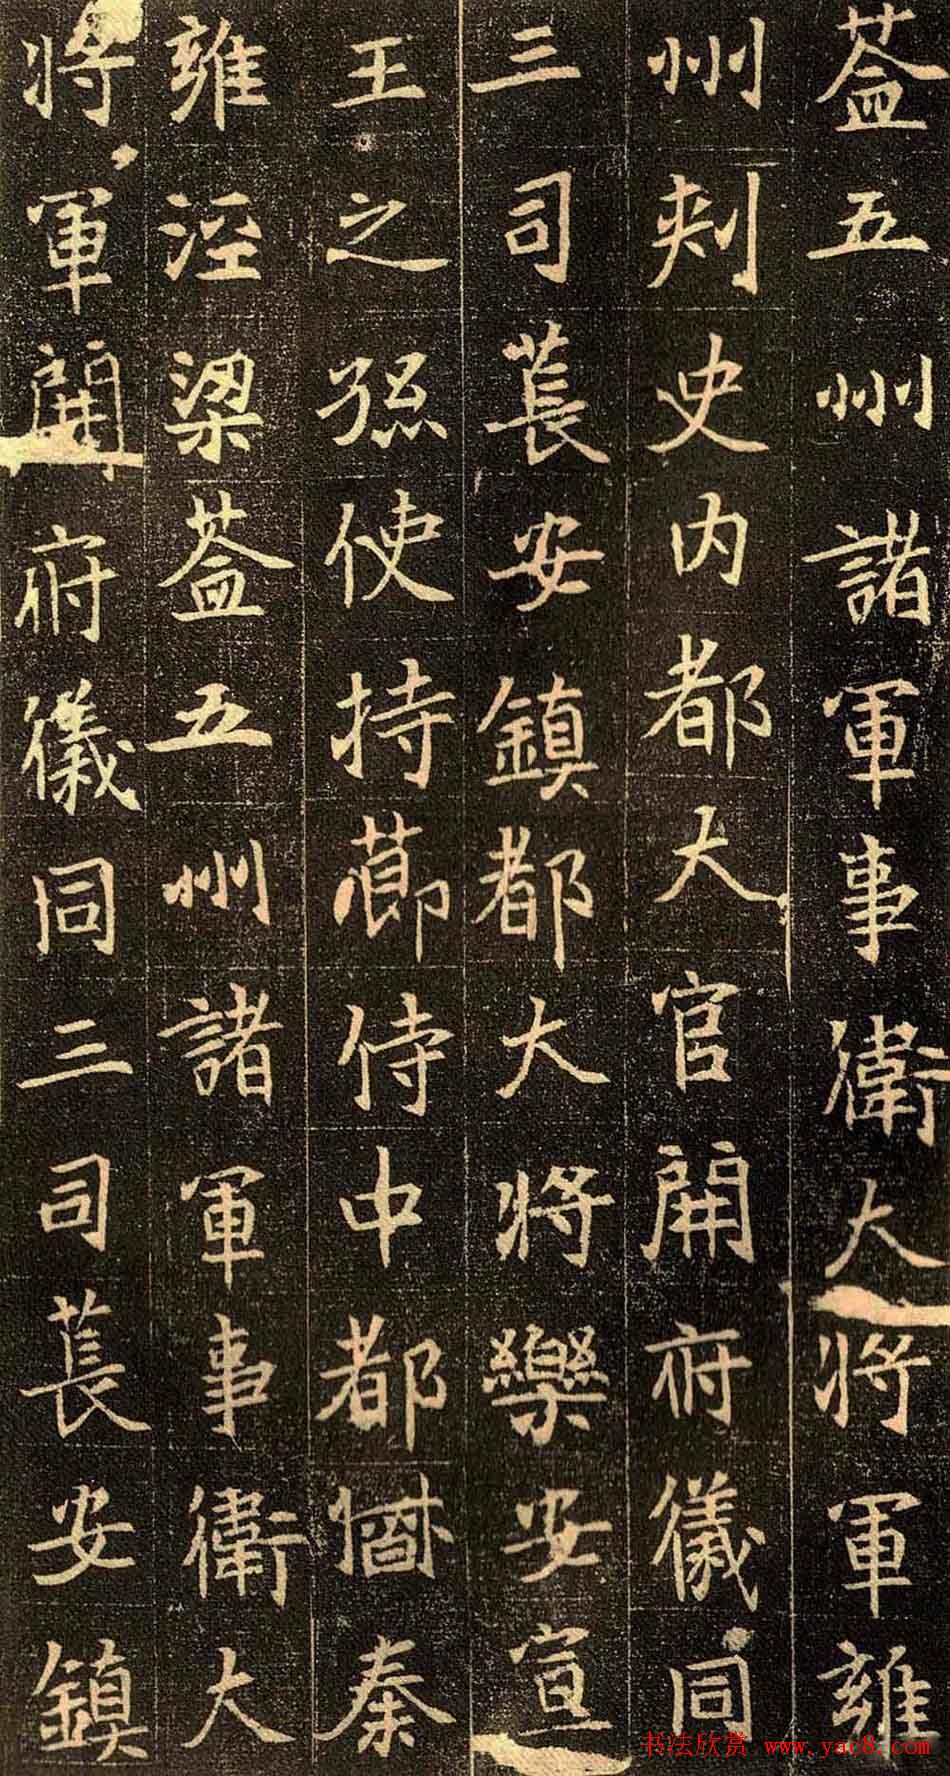 益五州諸軍事衛大將軍雍
州刺史内都大官開府儀同
三司萇安鎮都大將樂安宣
王之孫使持節侍中都督秦
雍涇梁益五州諸軍事衛大
將軍開府儀同三司萇安鎮
书法欣赏 www.yac8.com